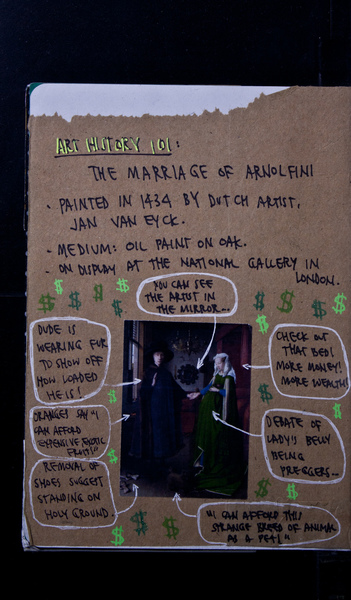 ART HISTORY 101:
THE MARRIAGE OF ARNOLFINI
- PAINTED IN 1434 BY DUTCH ARTIST,
JAN VAN EYCK.
- MEDIUM: OIL PAINT ON OAK.
- ON DISPLAY AT THE NATIONAL GALLERY IN
LONDON.
YOU CAN SEE
THE ARTIST IN
THE MIRROR...
DUDE IS
WEARING FUR
TO SHOW OFF
HOW LOADED
HE IS!
CHECK OUT
THAT BED!
MORE MONEY!
MORE WEALTH!
ORANGES SAY "I
CAN AFFORD
EXPENSIVE EXOTIC
FRUIT!"
DEBATE OF
LADY'S BELLY
BEING
PREGGERS...
REMOVAL OF
SHOES SUGGEST
STANDING ON
HOLY GROUND.
"I CAN AFFORD THIS
STRANGE BREED OF ANIMAL
AS A PET!"
$ $ $ $ $ $ $ $ $ $ $ $ $ $ $ $ $ $ $ $